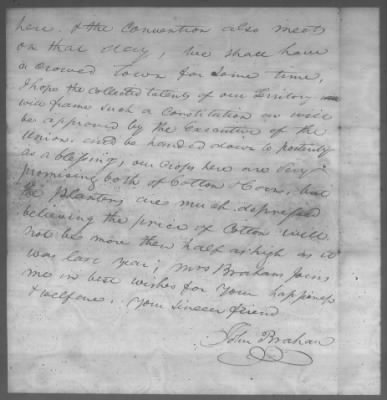 here. & the Convention also meets
on that day, we shall have
a Crowed town for some time,
I hope the collected talents of our Territory
will frame such a Constitution as will
be approved by the Executive of the
Union, and be handed down to posterity
as a blessing, our Crops here are very
promising both of Cotton & Corn, but
the planters are much depressed
believing the price of Cotton will
not be more then half as high as it
was last year; Mrs Braham Joins
me in best wishes for your happiness
& welfare. Your sincer friend
John Brahan